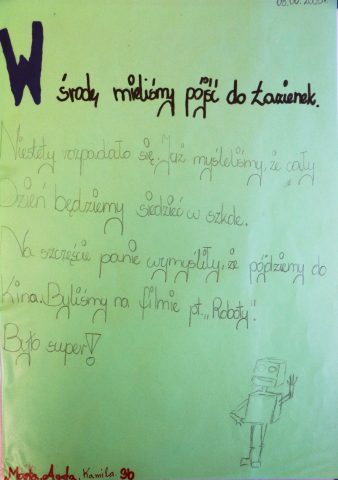 05.06.2005r.
W środę mieliśmy pójść do Łazienek.
Niestety rozpadało się. Już myśleliśmy, że cały
Dzień będziemy siedzieć w szkole.
Na szczęście panie wymyśliły, że pójdziemy do
Kina. Byliśmy na filmie pt. „Roboty".
Było super!
Marta, Agata, Kamila. 3b